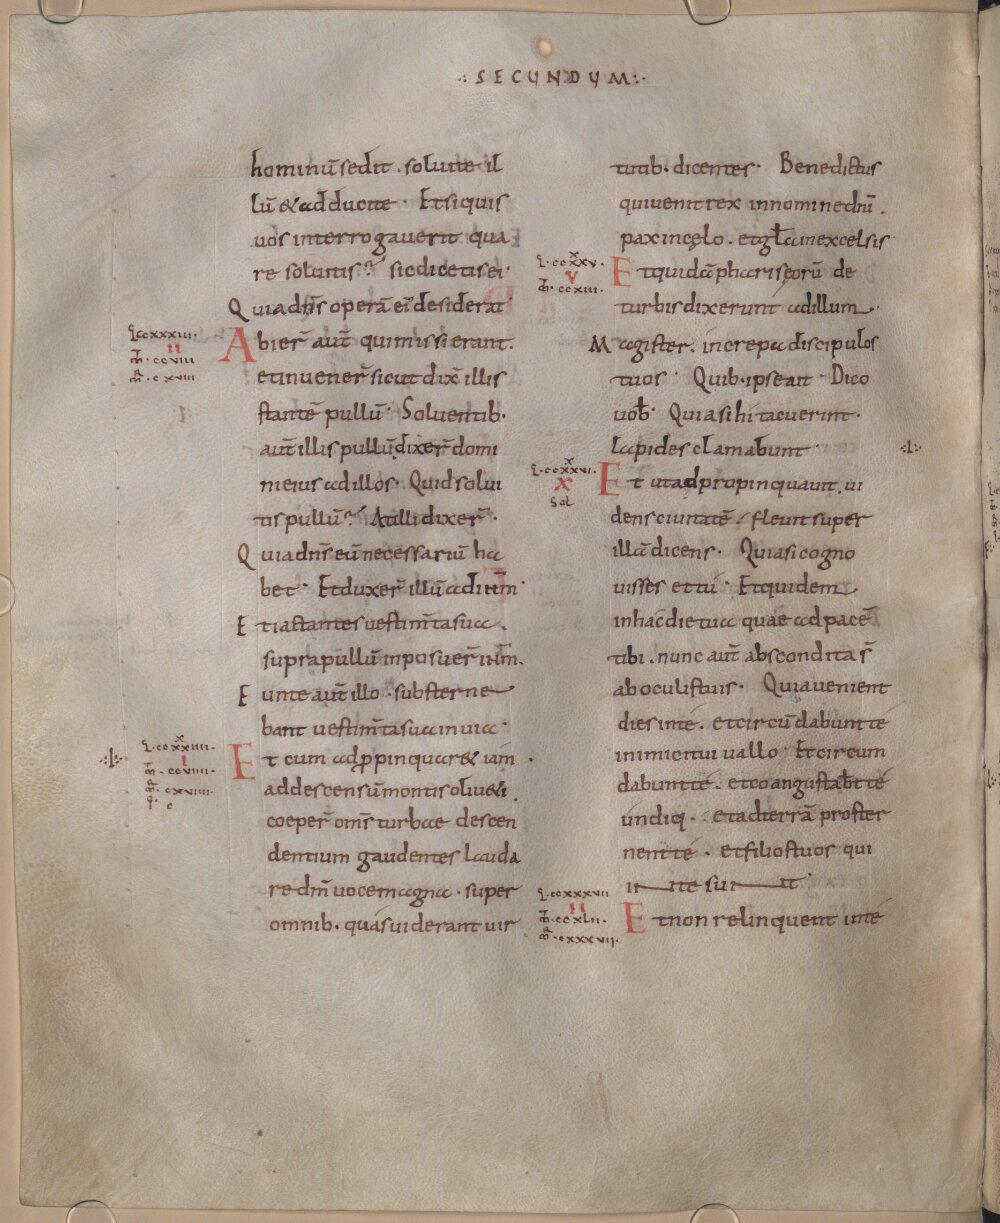 .: SECUNDUM :.
hominū sedit . soluite il
lū & adducite . Et si quis
uos interrogauerit qua
re soluitis ? sic dicetis ei .
Quia dn̄s operā ei' desiderat .
L. ccxxxiii.
II
M. ccviii
M. cxviii
Abier̄ aut̄ qui missi erant .
et inuener̄ sicut dix̄ illis
stantē pullū . Soluentib .
aut̄ illis pullū dixer̄ domi
ni eius ad illos . Quid solui
tis pullū ? At illi dixer̄ .
Quia dn̄s eū necessariū ha
bet . Et duxer̄ illū ad ihm̄ .
Et iactantes uestim̄ta sua .
supra pullū inposuer̄ ihm̄ .
Eunte aut̄ illo . subst̄erne
bant uestim̄ta sua in uia .
L. ccxxxiiii.
I
M. ccviiii.
M. cxviiii.
Et cum adp̱pinquar& iam
ad descensū montis oliu&i .
coeper̄ oms̄ turbae descen
dentium gaudentes lauda
re dm̄ uoce magna . super
omnib . quas uiderant uir
tutib . dicentes . Benedictus
qui uenit rex in nomine dn̄i .
pax in cęlo . et gl̄a in excelsis
L. ccxxxv.
V
M. ccxiii.
Et quidā pharisęorū de
turbis dixerunt ad illum .
Magister . increpa discipulos
tuos . Quib . ipse ait . Dico
uob̄ . Quia si hi tacuerint .
lapides clamabunt .
L. ccxxxvi.
X
Sol
Et ut adpropinquauit . ui
dens ciuitatē . fleuit super
illā dicens . Quia si cogno
uisses et tu . Et quidem
in hac die tua quae ad pacē
tibi . nunc aut̄ abscondita s̄
ab oculis tuis . Quia uenient
dies in te . et circūdabunt te
inimici tui uallo . Et circum
dabunt te . et coangustab̄t te
undiq . et ad terrā proster
nent te . et filios tuos qui
in te sunt .
L. ccxxxvii
II
M. ccxlii.
M. cxxxvii.
Et non relinquent in te